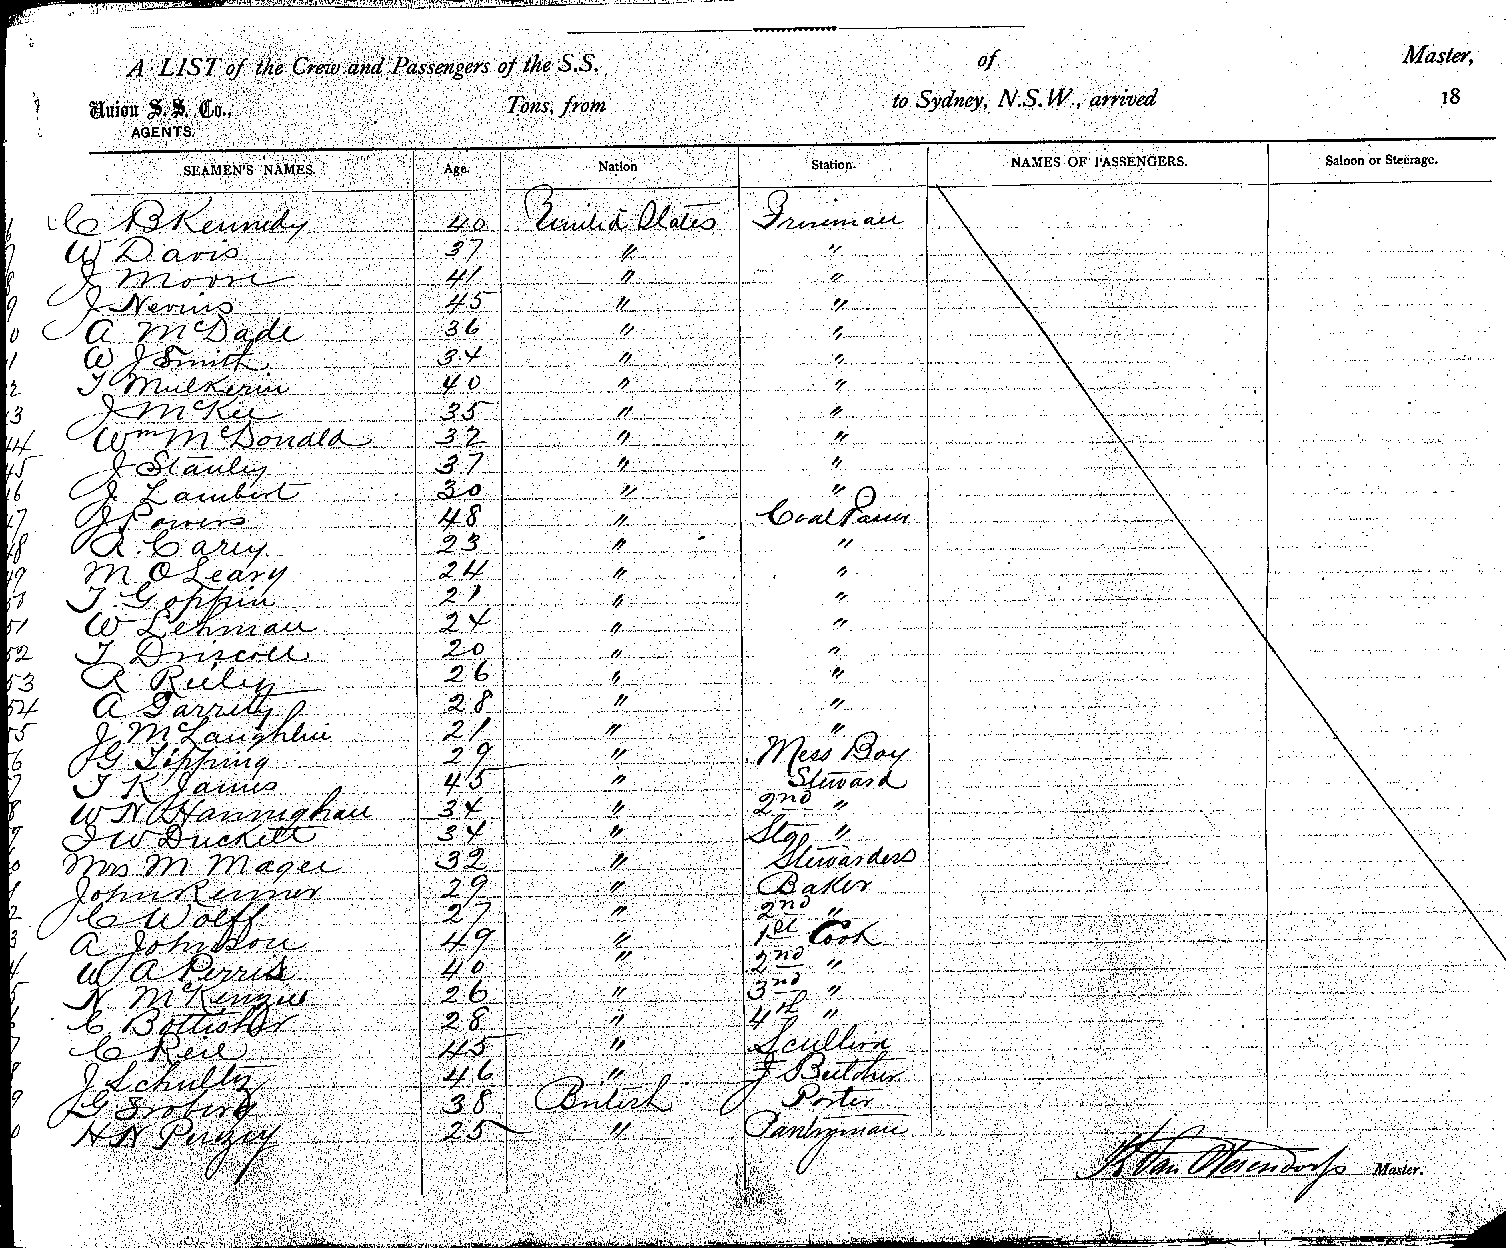 A LIST of the Crew and Passengers of the S.S. of Master,
Union S. S. Co., Tons, from to Sydney, N.S.W., arrived 18
AGENTS.
SEAMEN'S NAMES. Age. Nation Station. NAMES OF PASSENGERS. Saloon or Steerage.
6 C B Kennedy 40 United States Fireman
7 W Davis 37 " "
8 J Moore 41 " "
9 J Nevins 45 " "
0 A McDade 36 " "
1 W J Smith 34 " "
2 T Mulkerin 40 " "
3 J McKee 35 " "
44 Wm McDonald 32 " "
45 J Stanley 37 " "
46 J Lambert 30 " "
47 J Powers 48 " Coal Passer
48 R Carey 23 " "
49 M O'Leary 24 " "
50 T Goppin 21 " "
51 W Lehman 24 " "
52 T Driscoll 20 " "
53 R Rieley 26 " "
54 A Garrity 28 " "
55 J McLaughlin 21 " "
6 J G Tipping 29 " Mess Boy
7 T K James 45 " Steward
8 W N Hannighan 34 " 2nd "
9 W Duckett 34 " Stge "
0 Mrs M Magee 32 " Stewardess
1 John Renner 29 " Baker
2 C Wolff 27 " 2nd "
3 A Johnson 49 " 1st Cook
4 W A Perris 40 " 2nd "
5 N McKenzie 26 " 3rd "
6 C Bottisher 28 " 4th "
7 C Reil 45 " Scullion
8 J Schultz 46 " Butcher
9 J G 38 British Porter
0 H N 25 " Pantryman
Master.